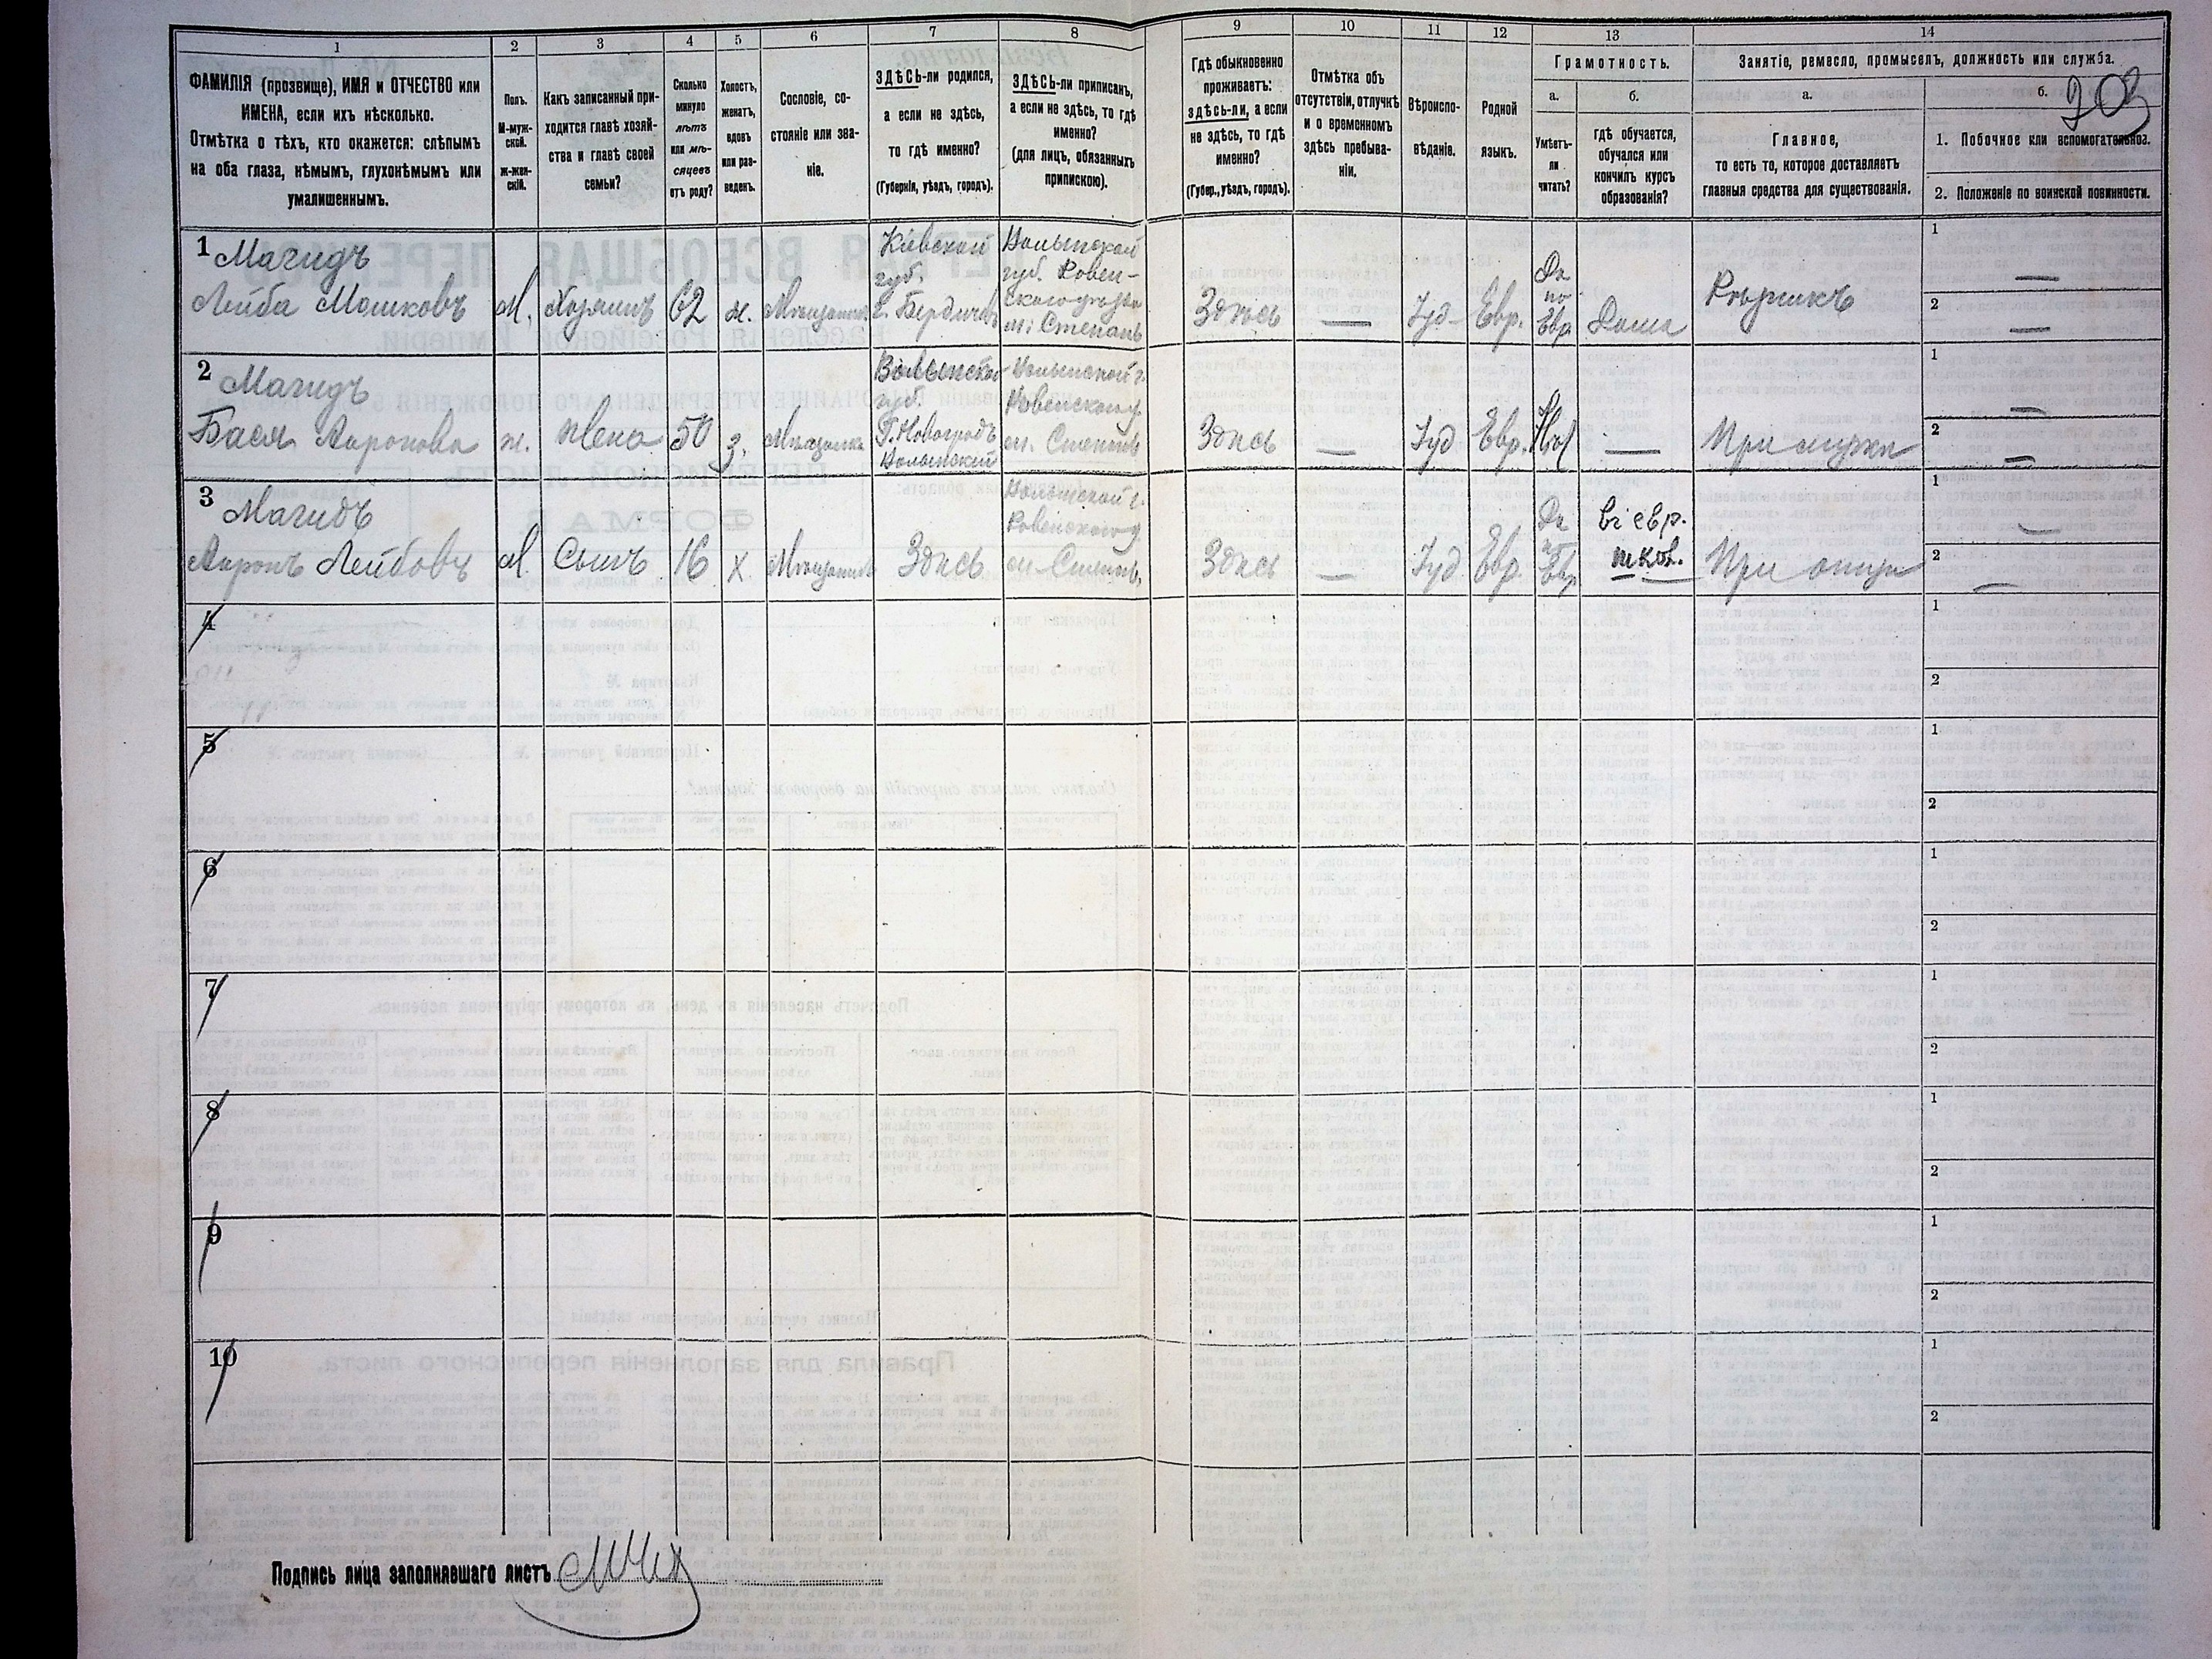 1 2 3 4 5 6 7 8 9 10 11 12 13 14
ФАМИЛІЯ (прозвище), ИМЯ и ОТЧЕСТВО или
ИМЕНА, если ихъ нѣсколько.
Отмѣтка о тѣхъ, кто окажется: слѣпымъ
на оба глаза, нѣмымъ, глухонѣмымъ или
умалишеннымъ.
Полъ.
М-муж-
ской.
ж-жен-
скій.
Какъ записанный при-
ходится главѣ хозяй-
ства и главѣ своей
семьи?
Сколько
минуло
лѣтъ
или мѣ-
сяцевъ
отъ роду?
Холостъ,
женатъ,
вдовъ
или раз-
веденъ.
Сословіе, со-
стояніе или зва-
ніе.
ЗДѢСЬ-ли родился,
а если не здѣсь,
то гдѣ именно?
(Губернія, уѣздъ, городъ).
ЗДѢСЬ-ли приписанъ,
а если не здѣсь, то гдѣ
именно?
(для лицъ, обязанныхъ
припискою).
Гдѣ обыкновенно
проживаетъ:
здѣсь-ли, а если
не здѣсь, то гдѣ
именно?
(Губер., уѣздъ, городъ).
Отмѣтка объ
отсутствіи, отлучкѣ
и о временномъ
здѣсь пребыва-
ніи.
Вѣроиспо-
вѣданіе.
Родной
языкъ.
Грамотность.
а.
Умѣетъ-
ли
читать?
б.
гдѣ обучается,
обучался или
кончилъ курсъ
образованія?
Занятіе, ремесло, промыселъ, должность или служба.
а.
Главное,
то есть то, которое доставляетъ
главныя средства для существованія.
б.
1. Побочное или вспомогательное.
2. Положеніе по воинской повинности.
1 Магидъ
Лейба Мошковъ
М.
Хозяинъ
62
ж.
Мѣщанинъ
Кіевской
губ.
г. Бердичев
Волынской
губ. Ровен-
скаго уѣзда
м. Степань
Здѣсь
—
Іуд
Евр.
Да
по
Евр
Дома
Рѣзникъ
1 —
2 —
2 Магидъ
Бася Ааронова
ж.
жена
50
з.
Мѣщанка
Волынской
губ.
Г. Новоградъ
Волынский
Волынской г.
Ровенского у.
м. Степань
Здѣсь
—
Іуд
Евр.
—
При мужѣ
1 —
2 —
3 Магидъ
Ааронъ Лейбовъ
М
Сынъ
16
х
Мѣщанинъ
Здѣсь
Волынской г.
Ровенского у.
м. Степань
Здѣсь
—
Іуд
Евр.
Да
п
Евр
въ евр.
школ.
При отцѣ
1 —
2 —
4
1
2
5
1
2
6
1
2
7
1
2
8
1
2
9
1
2
10
1
2
Подпись лица заполнявшаго листъ